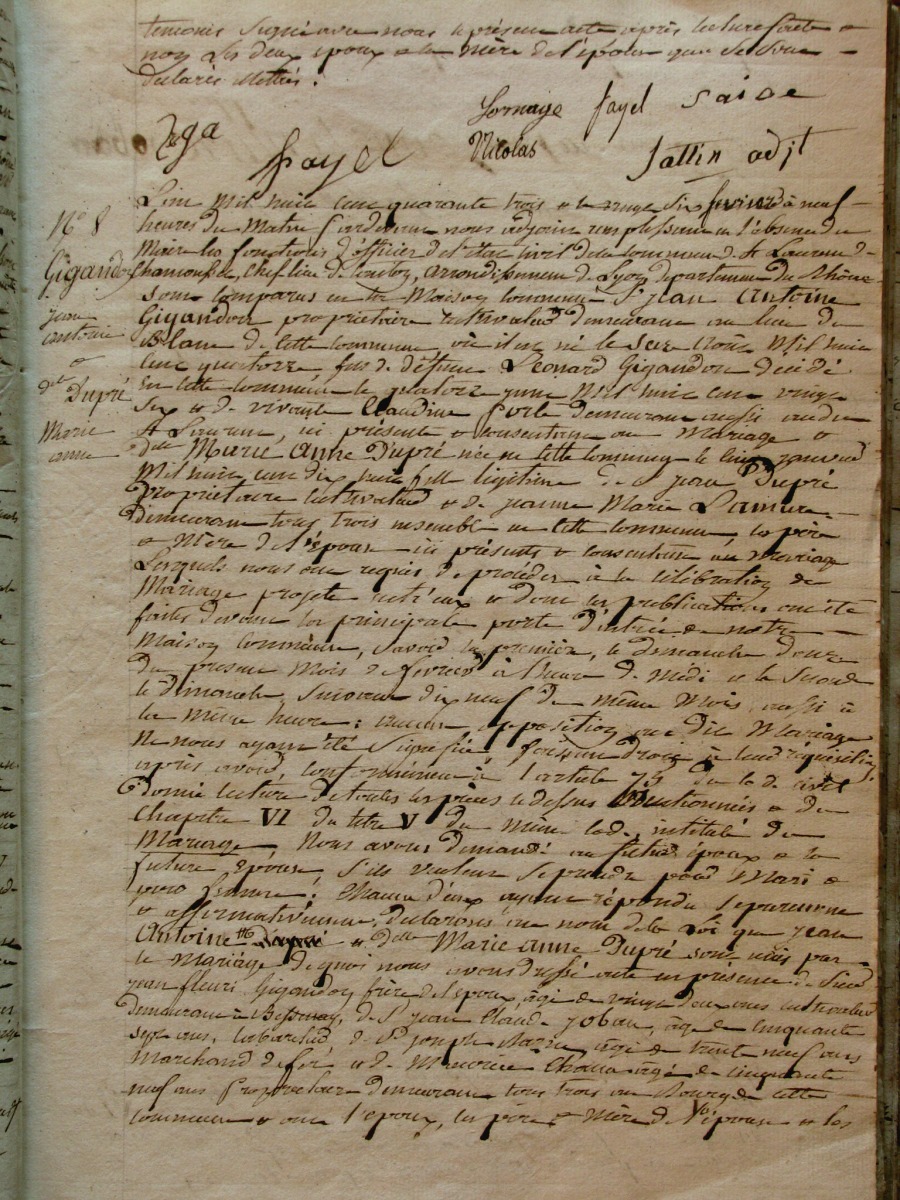 temoins signé avec nous le présent acte après lecture faite
non les deux époux et la mère de l'époux qui se sont
déclarés illettrés.
Fornage fayel saive
Nicolas
fayel
Jattin adjt
N° 8
Gigandon
jean
antoine
et
dlle
Dupré
Marie
anne
L'an mil huit cent quarante trois et le vingt six fevrier à neuf
heures du Matin pardevant nous adjoint remplissant en l'absence du
Maire les fonctions d'officier de l'état civil de la commune de St Laurent de
Chamousset, chef lieu de canton, arrondissement de Lyon département du Rhône
sont comparus en la Maison commune Sr jean antoine
Gigandon propriétaire cultivateur demeurant au lieu du
Blanc de cette commune, où il est né le Mil huit
cent quatorze fils de défunt Léonard Gigandon décédé
en cette commune le quatorze juin Mil huit cent vingt
six et de vivante Claudine forte demeurant aussi audit
St Laurent, ici présente et consentant au Mariage et
dlle Marie Anne Dupré née en cette commune le cinq janvier
Mil huit cent dix huit fille légitime de Sr jean Dupré
propriétaire cultivateur et de jeanne Marie
demeurant tous trois ensemble en cette commune, les père
et Mère de l'épouse ici présents et consentant au Mariage
Lesquels nous ont requis de procéder à la célébration du
Mariage projeté entr'eux et dont les publications ont été
faites devant la principale porte d'entrée de notre
Maison commune, savoir la première, le dimanche douze
du présent Mois de fevrier à l'heure de midi et la seconde
le dimanche suivant dix neuf du même Mois aussi à
la même heure; aucune opposition au dit Mariage
ne nous ayant été signifiée, faisant droit à leur réquisition
après avoir conformément à l'article 75 du code civil
donné lecture de toutes les pièces ci dessus Mentionnées et du
Chapitre VI du titre V du même code, intitulé du
Mariage, Nous avons demandé au futur époux et à la
future épouse, s'ils veulent se prendre pour Mari et
pour femme; chacun d'eux ayant répondu séparément
et affirmativement, declarons au nom de la Loi que jean
Antoine et dlle Marie anne Dupré sont unis par
le Mariage de quoi nous avons dressé acte en présence de Sieur
jean fleuri Gigandon frère de l'époux, âgé de vingt deux ans cultivateur
demeurant à Bessenay, de Sr jean Claude joban, âgé de cinquante
sept ans, cabaretier, de Sr joseph âgé de trente neuf ans
Marchand de fer et de Maurice âgé de cinquante
neuf ans propriétaire demeurant tous trois au Bourg de cette
commune et ont l'époux, les père et Mère de l'épouse et les